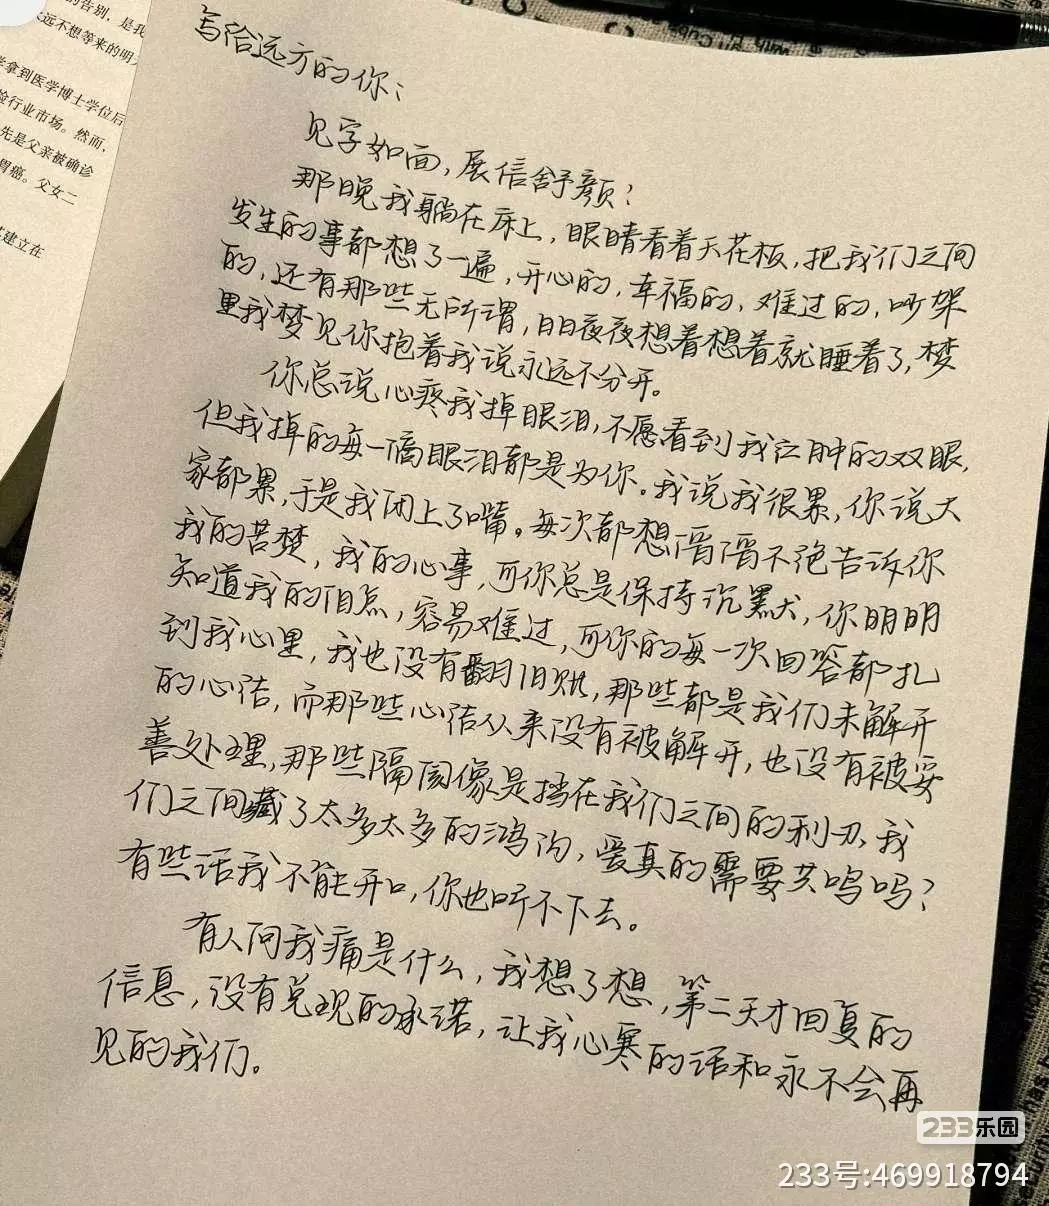 的告别，是我
远不想等来的明
拿到医学博士学位后
险行业市场。然而，
先是父亲被确诊
胃癌。父女二
建立在
写给远方的你：
见字如面，展信舒颜！
那晚我躺在床上，眼睛看着天花板，把我们之间
发生的事都想了一遍，开心的，幸福的，难过的，吵架
的，还有那些无所谓，日日夜夜想着想着就睡着了，梦
里我梦见你抱着我说永远不分开。
你总说心疼我掉眼泪，不愿看到我红肿的双眼，
但我掉的每一滴眼泪都是为你。我说我很累，你说大
家都累，于是我闭上了嘴。每次都想滔滔不绝告诉你
我的苦楚，我的心事，可你总是保持沉默，你明明
知道我的泪点，容易难过，可你的每一次回答都扎
到我心里，我也没有翻旧账，那些都是我们未解开
的心结，而那些心结从来没有被解开，也没有被妥
善处理，那些隔阂像是挡在我们之间的利刃，我
们之间藏了太多太多的鸿沟，爱真的需要共鸣吗？
有些话我不能开口，你也听不下去。
有人问我痛是什么，我想了想，第二天才回复的
信息，没有兑现的承诺，让我心寒的话和永不会再
见的我们。
233乐园
233号:469918794